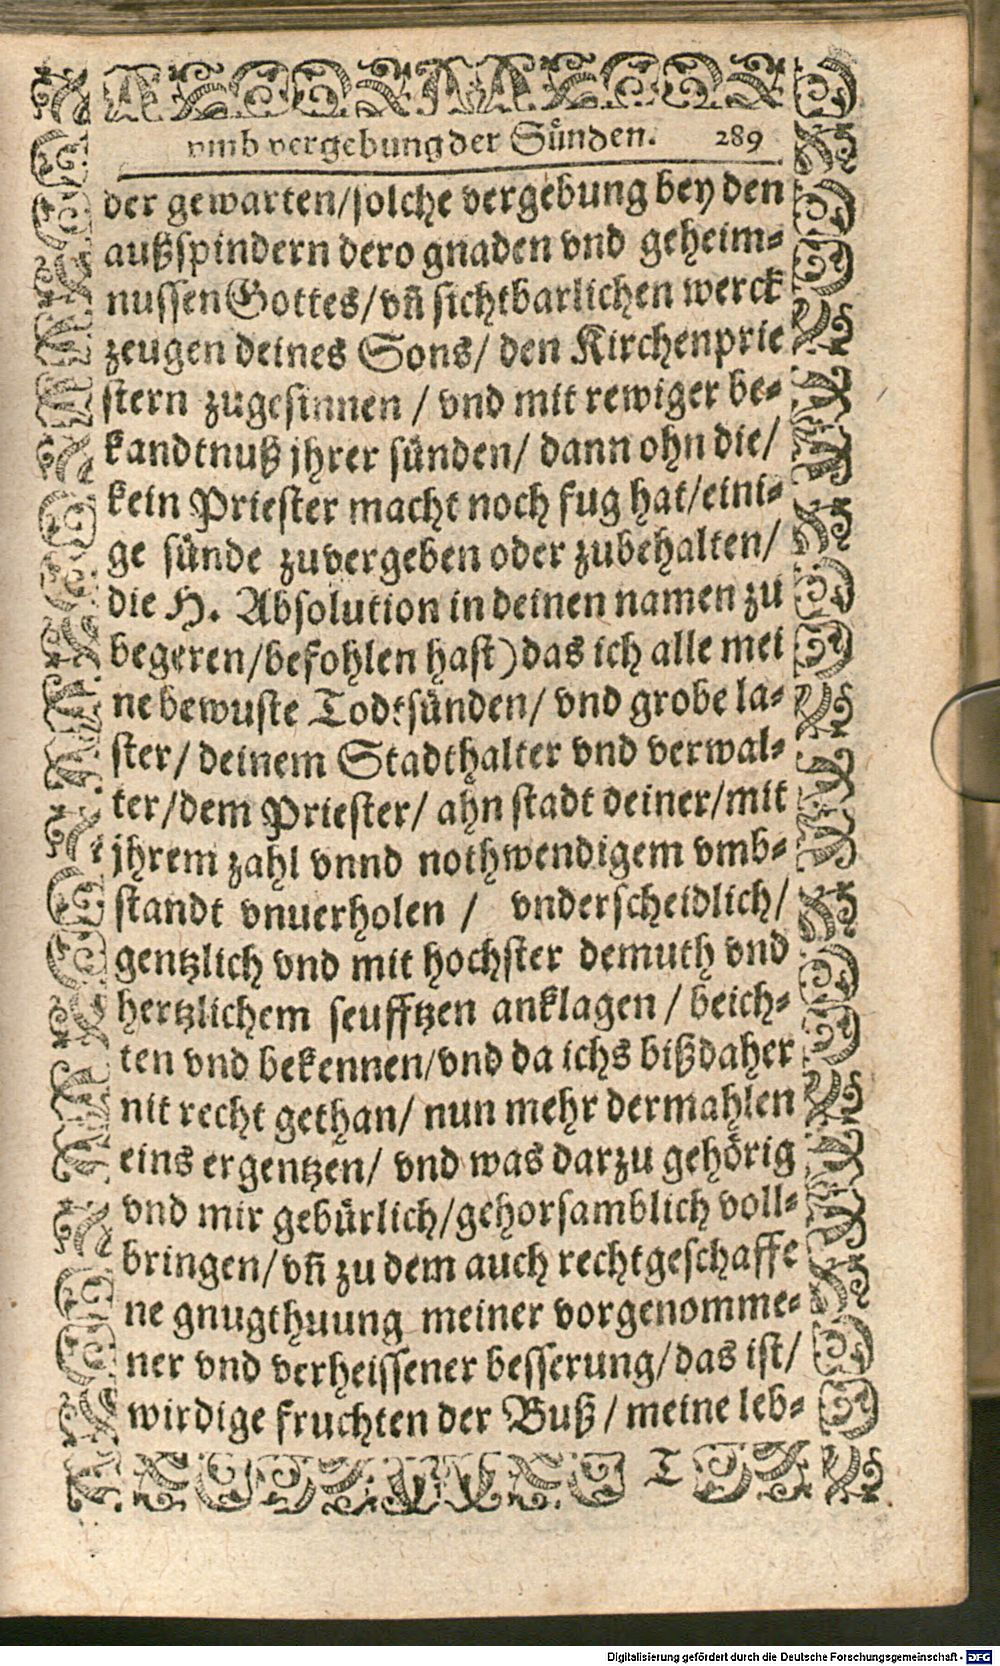 vmb vergebung der Sünden. 289
der gewarten/solche vergebung bey den
außspindern dero gnaden vnd geheim-
nussen Gottes/vn̄ sichtbarlichen werck
zeugen deines Sons/ den Kirchenprie
stern zugesinnen / vnd mit rewiger be-
kandtnuß jhrer sünden/ dann ohn die/
kein Priester macht noch fug hat/eini-
ge sünde zuvergeben oder zubehalten/
die H. Absolution in deinen namen zu
begeren/befohlen hast) das ich alle mei
ne bewuste Todtsünden/ vnd grobe la-
ster/ deinem Stadthalter vnd verwal-
ter/dem Priester/ ahn stadt deiner/mit
jhrem zahl vnnd nothwendigem vmb-
standt vnuerholen / vnderscheidlich/
gentzlich vnd mit hochster demuth vnd
hertzlichem seufftzen anklagen / beich-
ten vnd bekennen/vnd da ichs bißdaher
nit recht gethan/ nun mehr dermahlen
eins ergentzen/ vnd was darzu gehörig
vnd mir gebürlich/gehorsamblich voll-
bringen/vn̄ zu dem auch rechtgeschaffe
ne gnugthuung meiner vorgenomme-
ner vnd verheissener besserung/das ist/
wirdige fruchten der Buß / meine leb-
T
Digitalisierung gefördert durch die Deutsche Forschungsgemeinschaft - DFG